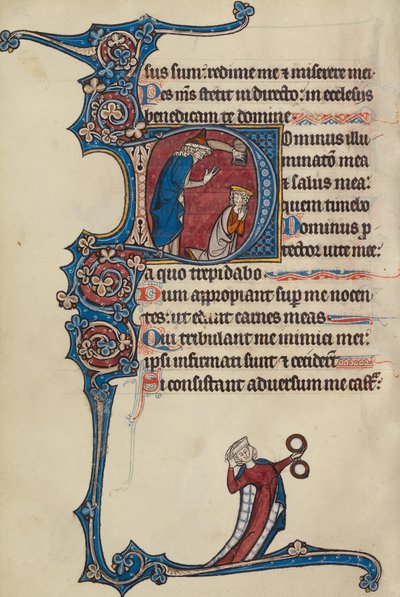 sus sum: redime me ⁊ miserere mei
Pes m̅s stetit in directo: in ecclesiis
benedicam te domine
Dominus illu
minatō mea
⁊ salus mea:
quem timebo
Dominus p
tector uite mee:
a quo trepidabo
Dum appropiant sup̱ me nocen
tes: ut edant carnes meas
Qui tribulant me inimici mei:
ipsi infirmati sunt ⁊ cecider̅t
Si consistant aduersum me castᵃ: